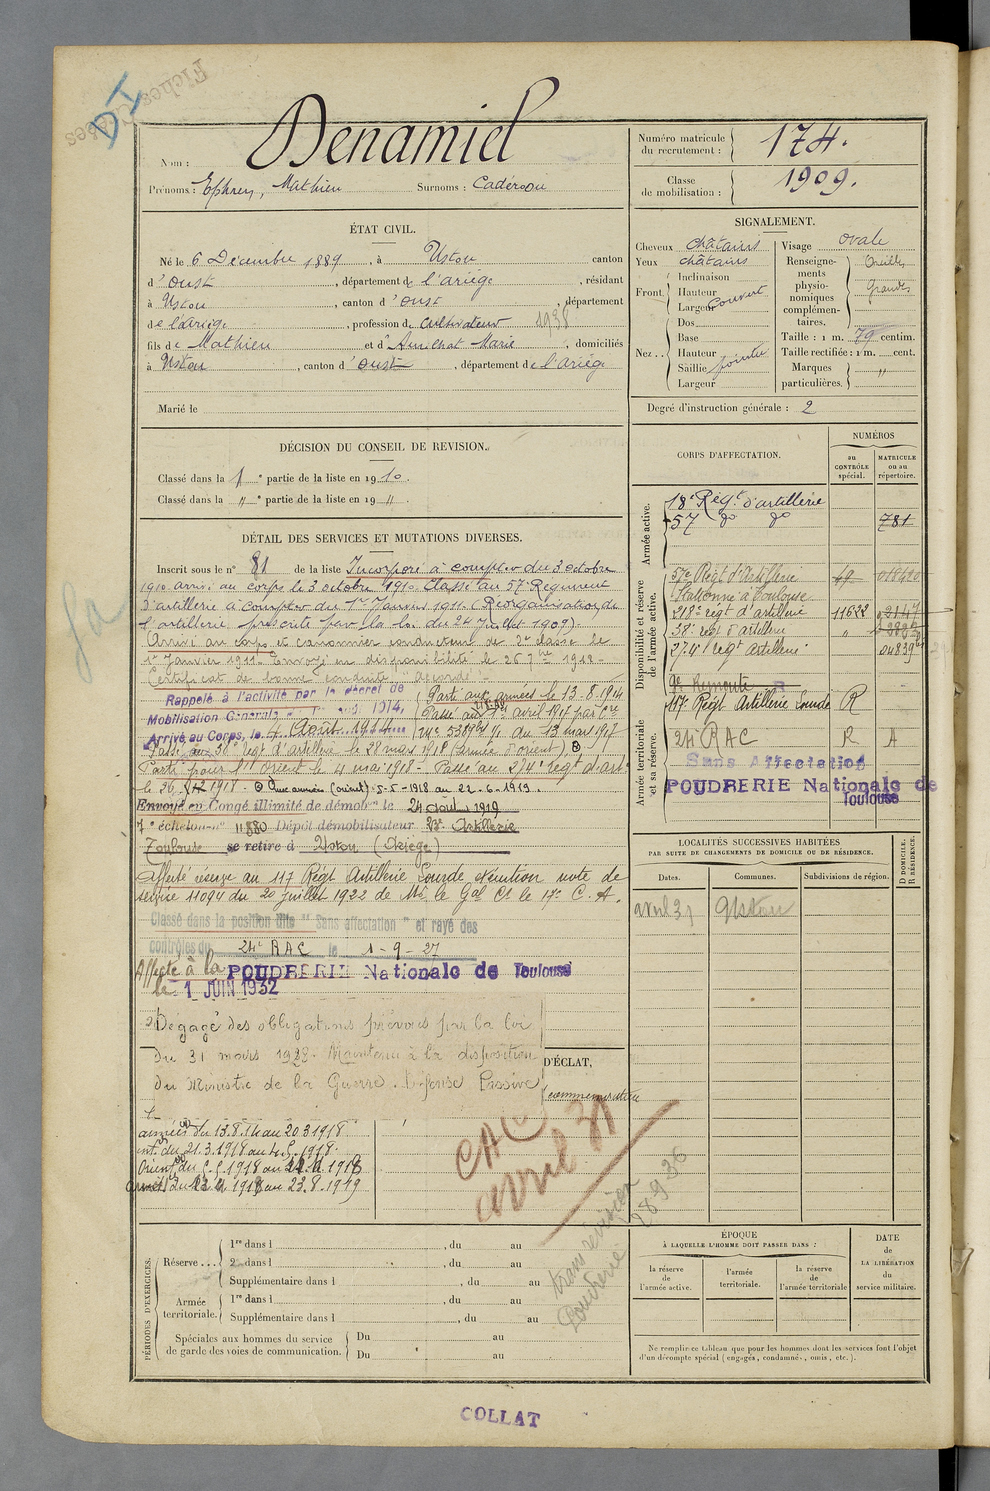 DI
Nom : Denamiel
Prénoms : Ephrem, Mathieu Surnoms : Cadérou
Numéro matricule du recrutement : 174.
Classe de mobilisation : 1909.
ÉTAT CIVIL.
Né le 6 Décembre 1889, à Ustou canton
d'Oust, département de l'ariége, résidant
à Ustou, canton d'Oust, département
de l'ariége, profession de cultivateur 1938
fils de Mathieu et d'Anichat Marie, domiciliés
à Ustou, canton d'oust, département de l'ariége
Marié le
SIGNALEMENT.
Cheveux châtains
Yeux châtains
Front. Inclinaison
Hauteur
Largeur couvert
Nez Dos
Base
Hauteur
Saillie pointu
Largeur
Visage ovale
Renseignements physionomiques complémentaires. Oreilles Grandes
Taille : 1 m. 79 centim.
Taille rectifiée : 1 m. cent.
Marques particulières. "
Degré d'instruction générale : 2
DÉCISION DU CONSEIL DE REVISION.
Classé dans la 1 e partie de la liste en 1910.
Classé dans la " e partie de la liste en 19 ".
DÉTAIL DES SERVICES ET MUTATIONS DIVERSES.
Inscrit sous le n° 81 de la liste Incorporé à compter du 3 octobre
1910 arrivé au corps le 3 octobre 1910. Classé au 57e Régiment
d'artillerie à compter du 1er Janvier 1911. (Réorganisation de
l'artillerie prescrite par la loi du 24 Juillet 1909).
Arrivé au corps et canonnier conducteur de 2e classe le
1er Janvier 1911. Envoyé en disponibilité le 26 7bre 1912
Certificat de bonne conduite "accordé".
Rappelé à l'activité par le décret de
Mobilisation Générale 1914,
Arrivé au Corps, le 4 Août 1914
Parti aux armées le 13.8.1914
Passé au 1er avril 1917 par
du 13 mars 1917
Passé au 38e régt d'artillerie le 28 mars 1918 (armée d'orient)
Parti pour l'Orient le 4 mai 1918 - Passé au 274e régt d'art
le 26 1918 - Aux armées (orient) 5-5-1918 au 22-6-1919.
Envoyé en Congé illimité de démob le 24 août 1919
7e échelon n° 11880 Dépôt démobilisateur 23e Artillerie
Toulouse se retire à Ustou (Ariège)
Affecté réserve au 117 Régt Artillerie Lourde exécution note de
service 11094 du 20 juillet 1922 de Mr le Gal Ct le 17e C. A.
Classé dans la position dite "Sans affectation" et rayé des
contrôles du 24e RAC le 1-9-27
Affecté à la POUDRERIE Nationale de Toulouse
le 1 JUIN 1932
Dégagé des obligations prévues par la loi
du 31 mars 1928. Maintenu à la disposition
du Ministre de la Guerre. Défense Passive
D'ÉCLAT,
commémorative
armées du 13.8.14 au 20.3.1918
int. du 21.3.1918 au 4.5.1918
Orient du 5.5.1918 au 1918
1918 au 23.8.1919
CAC
avril 31
CORPS D'AFFECTATION.
NUMÉROS
au CONTRÔLE spécial.
MATRICULE ou au répertoire.
Armée active.
18e Régt d'artillerie
57 do do 781
Disponibilité et réserve de l'armée active.
57e Régt d'Artillerie
Stationné à Toulouse
218e régt d'artillerie 11622
38e régt d'artillerie "
274e régt Artillerie
117 Régt Artillerie Lourde R
Armée territoriale et sa réserve.
24e RAC R A
Sans Affectation
POUDRERIE Nationale de
Toulouse
LOCALITÉS SUCCESSIVES HABITÉES
PAR SUITE DE CHANGEMENTS DE DOMICILE OU DE RÉSIDENCE.
D DOMICILE. R RÉSIDENCE.
Dates. Communes. Subdivisions de région.
avril 31 Ustou
PÉRIODES D'EXERCICES.
Réserve 1re dans l , du au
2e dans l , du au
Supplémentaire dans l , du au
Armée territoriale. 1re dans l , du au
Supplémentaire dans l , du au
Spéciales aux hommes du service de garde des voies de communication. Du au
Du au
Poudrerie
ÉPOQUE
À LAQUELLE L'HOMME DOIT PASSER DANS :
la réserve de l'armée active.
l'armée territoriale.
la réserve de l'armée territoriale
DATE de LA LIBÉRATION du service militaire.
Ne remplir ce tableau que pour les hommes dont les services font l'objet
d'un décompte spécial (engagés, condamnés, omis, etc.).
COLLAT